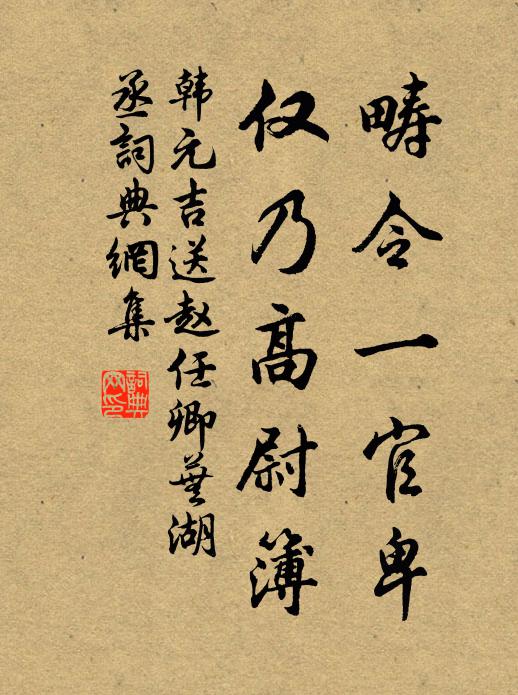 畴令一官卑
仅乃高尉簿
韩元吉送赵任卿芜湖
丞詞典網集
詞典網印